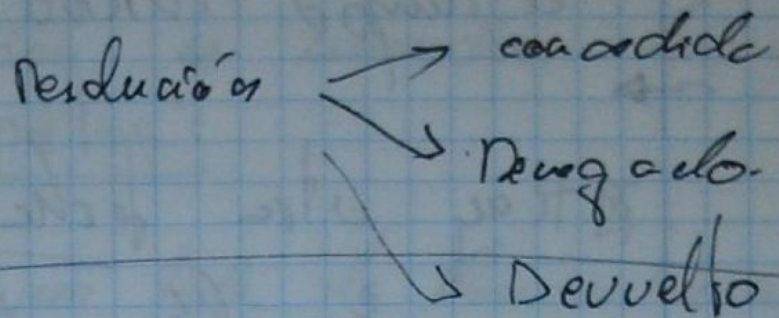 Resolución
concedido
Denegado.
Devuelto